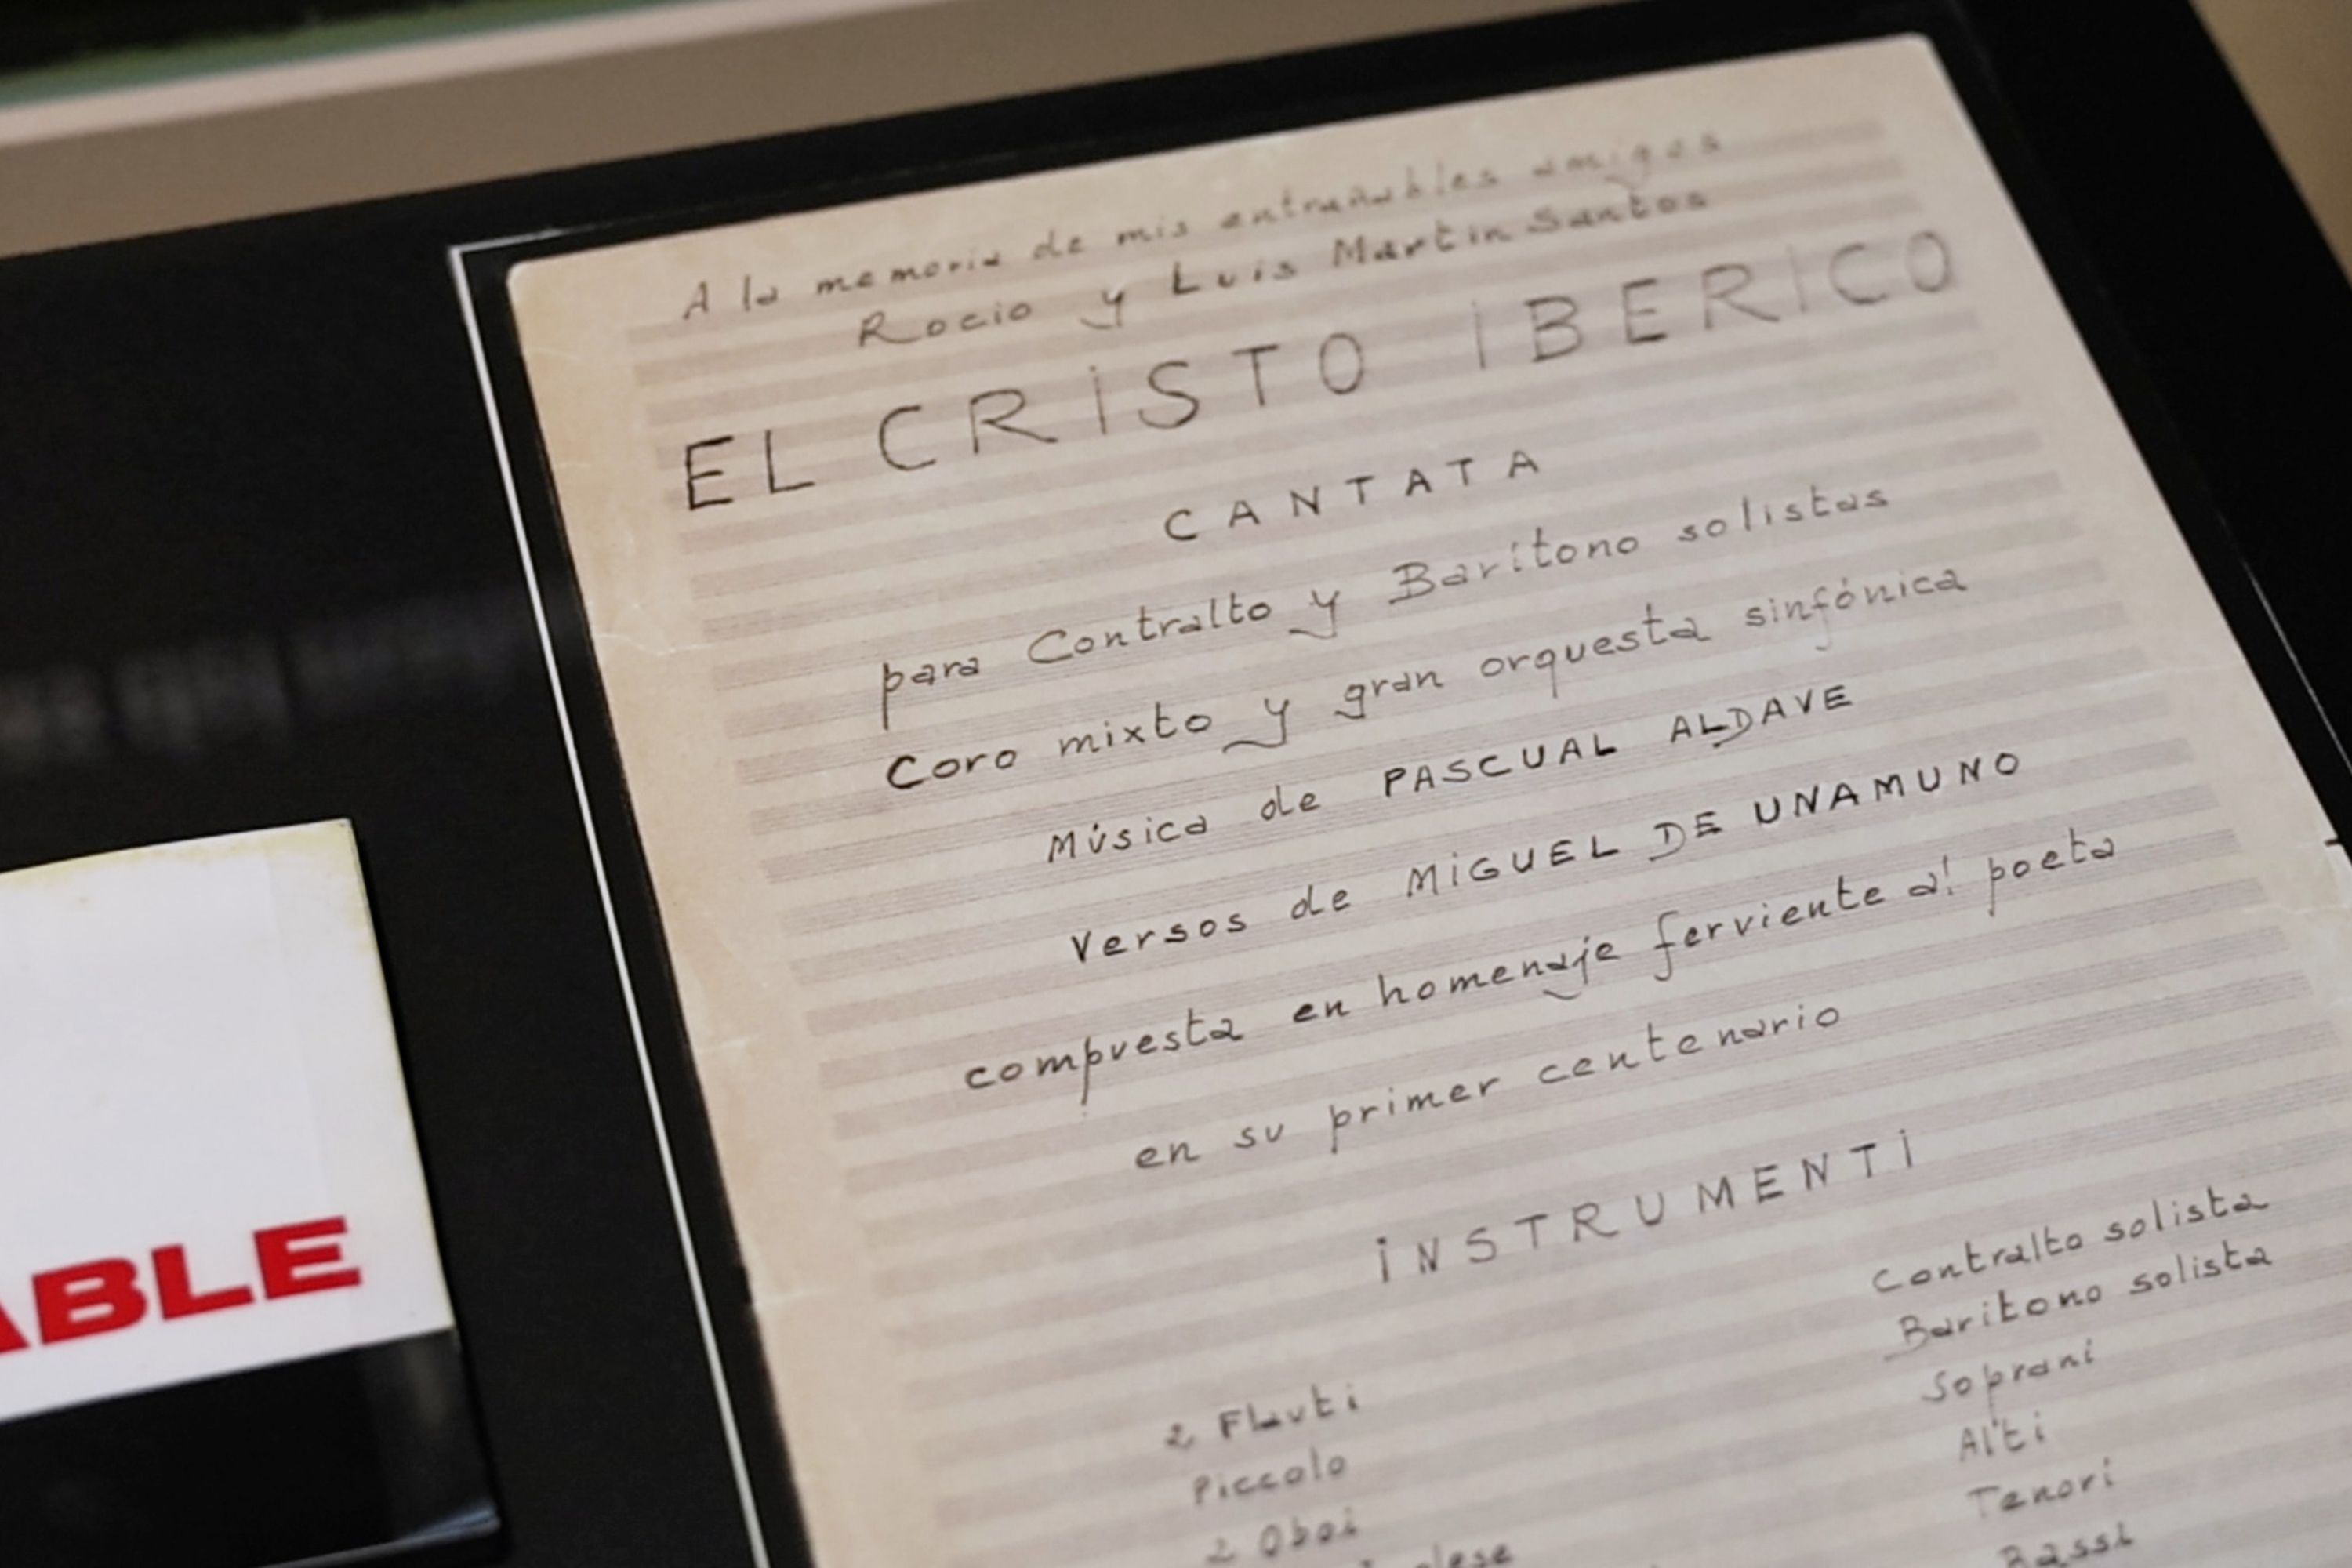 A la memoria de mis entrañables amigos
Rocio y Luis Martin Santos
EL CRISTO IBERICO
CANTATA
para Contralto y Barítono solistas
Coro mixto y gran orquesta sinfónica
Música de PASCUAL ALDAVE
Versos de MIGUEL DE UNAMUNO
compuesta en homenaje ferviente al poeta
en su primer centenario
INSTRUMENTI
2 Flauti
Piccolo
2 Oboi
Contralto solista
Baritono solista
Soprani
Alti
Tenori
Bassi
ABLE